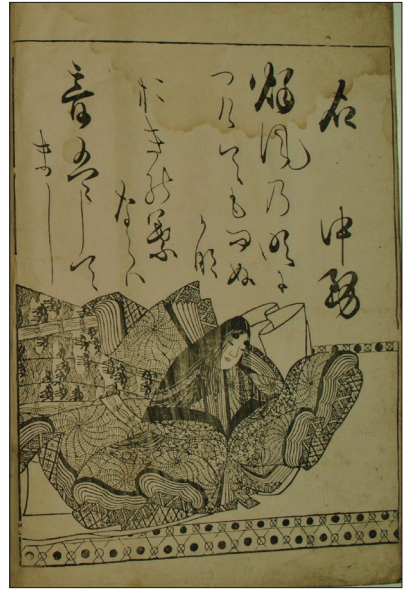 右　中務
秋風乃吹に
つけても問ぬ
かな
おき能葉
ならは
音盤して
まし